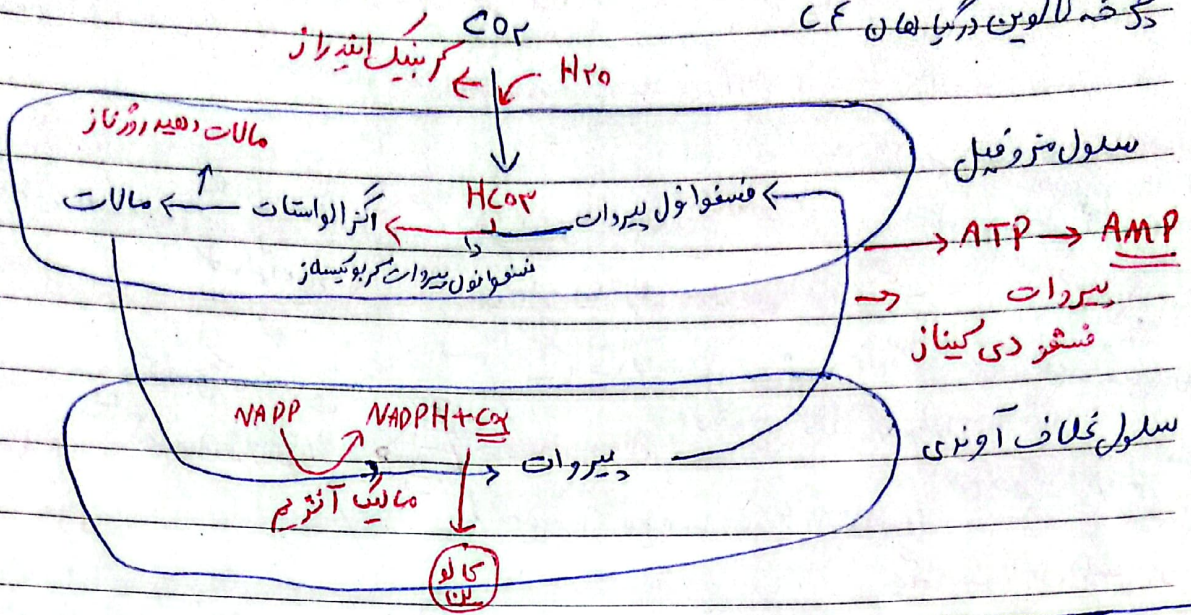 چرخه کالوین در گیاهان C۴
CO۲
کربنیک انیدراز
H۲O
سلول مزوفیل
مالات دهیدروژناز
HCO۳
فسفوانول پیروات
اگزالواستات
مالات
فسفوانول پیروات کربوکسیلاز
ATP → AMP
پیروات
فسفو دی کیناز
سلول غلاف آوندی
NADP
NADPH + CO۲
پیروات
مالیک آنزیم
کالوین